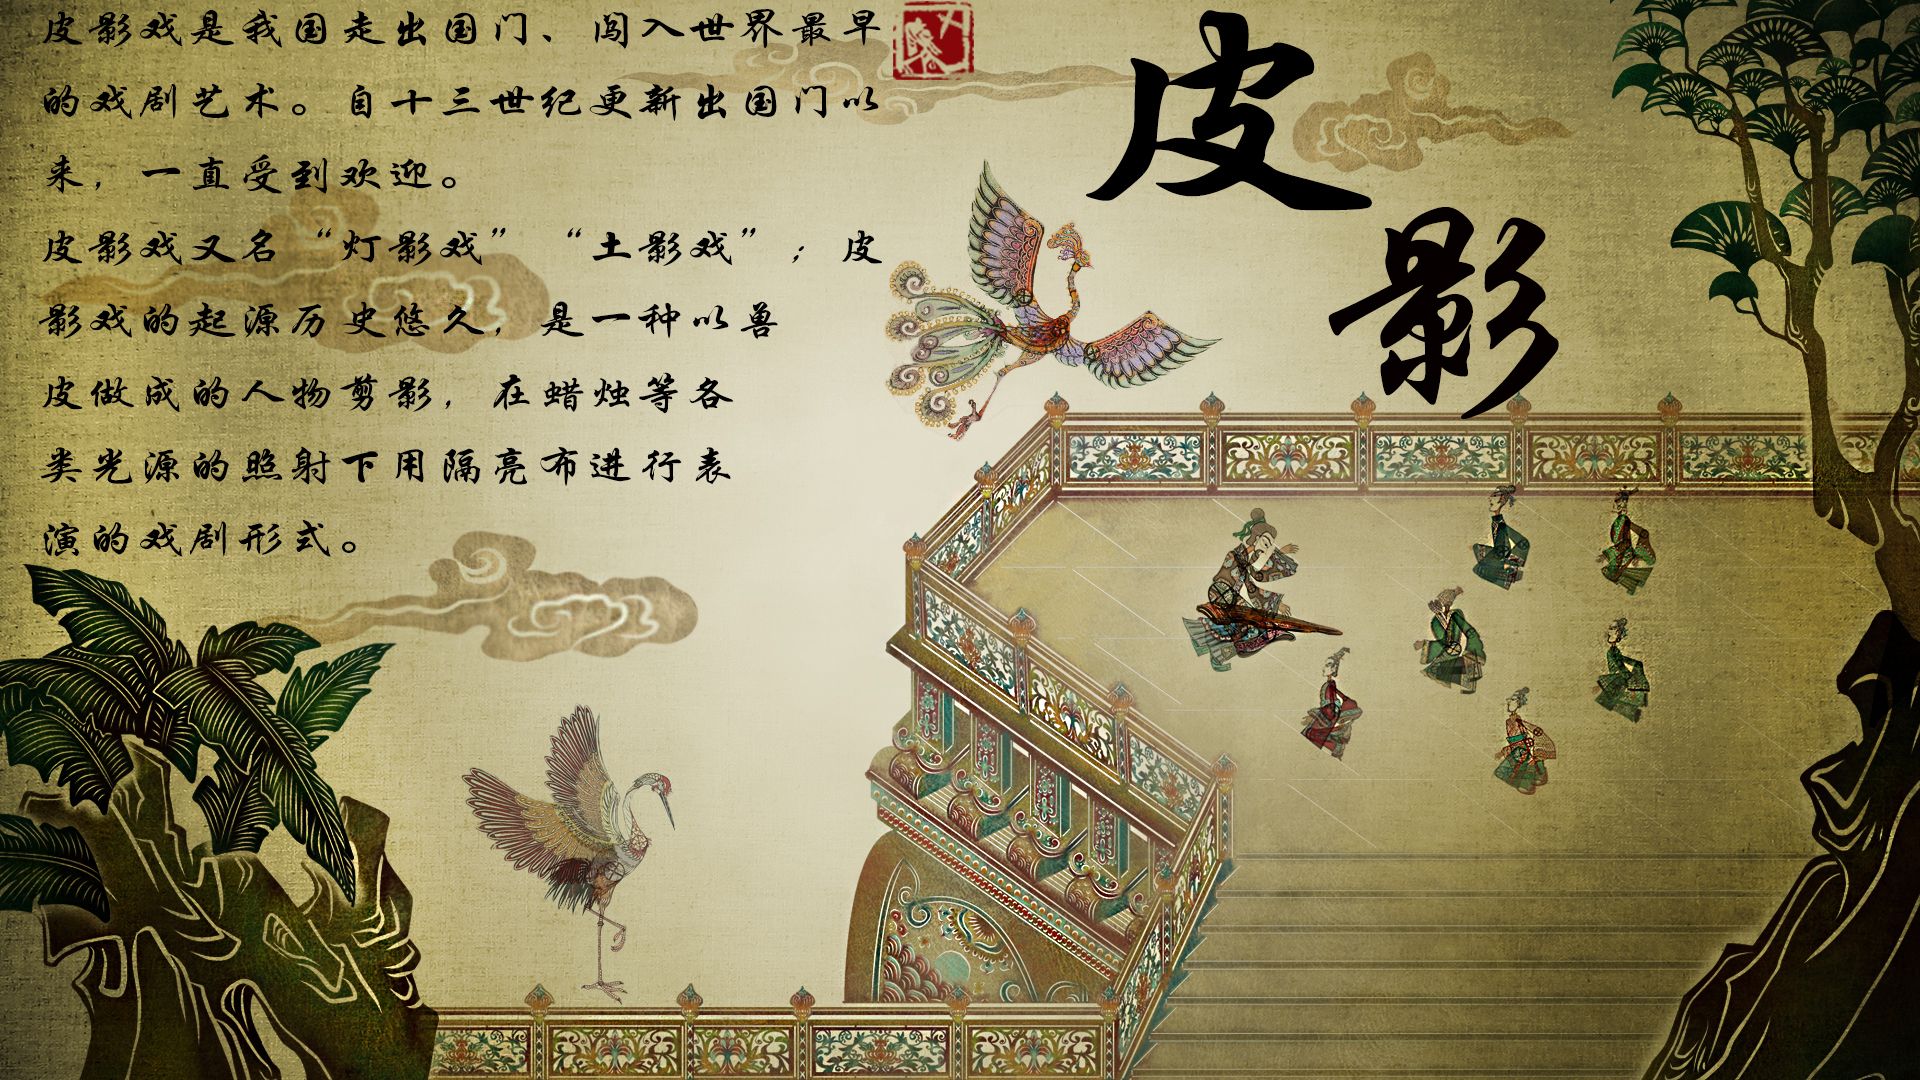 皮影戏是我国走出国门、闯入世界最早
的戏剧艺术。自十三世纪更新出国门以
来，一直受到欢迎。
皮影戏又名“灯影戏”“土影戏”；皮
影戏的起源历史悠久，是一种以兽
皮做成的人物剪影，在蜡烛等各
类光源的照射下用隔亮布进行表
演的戏剧形式。
皮
影